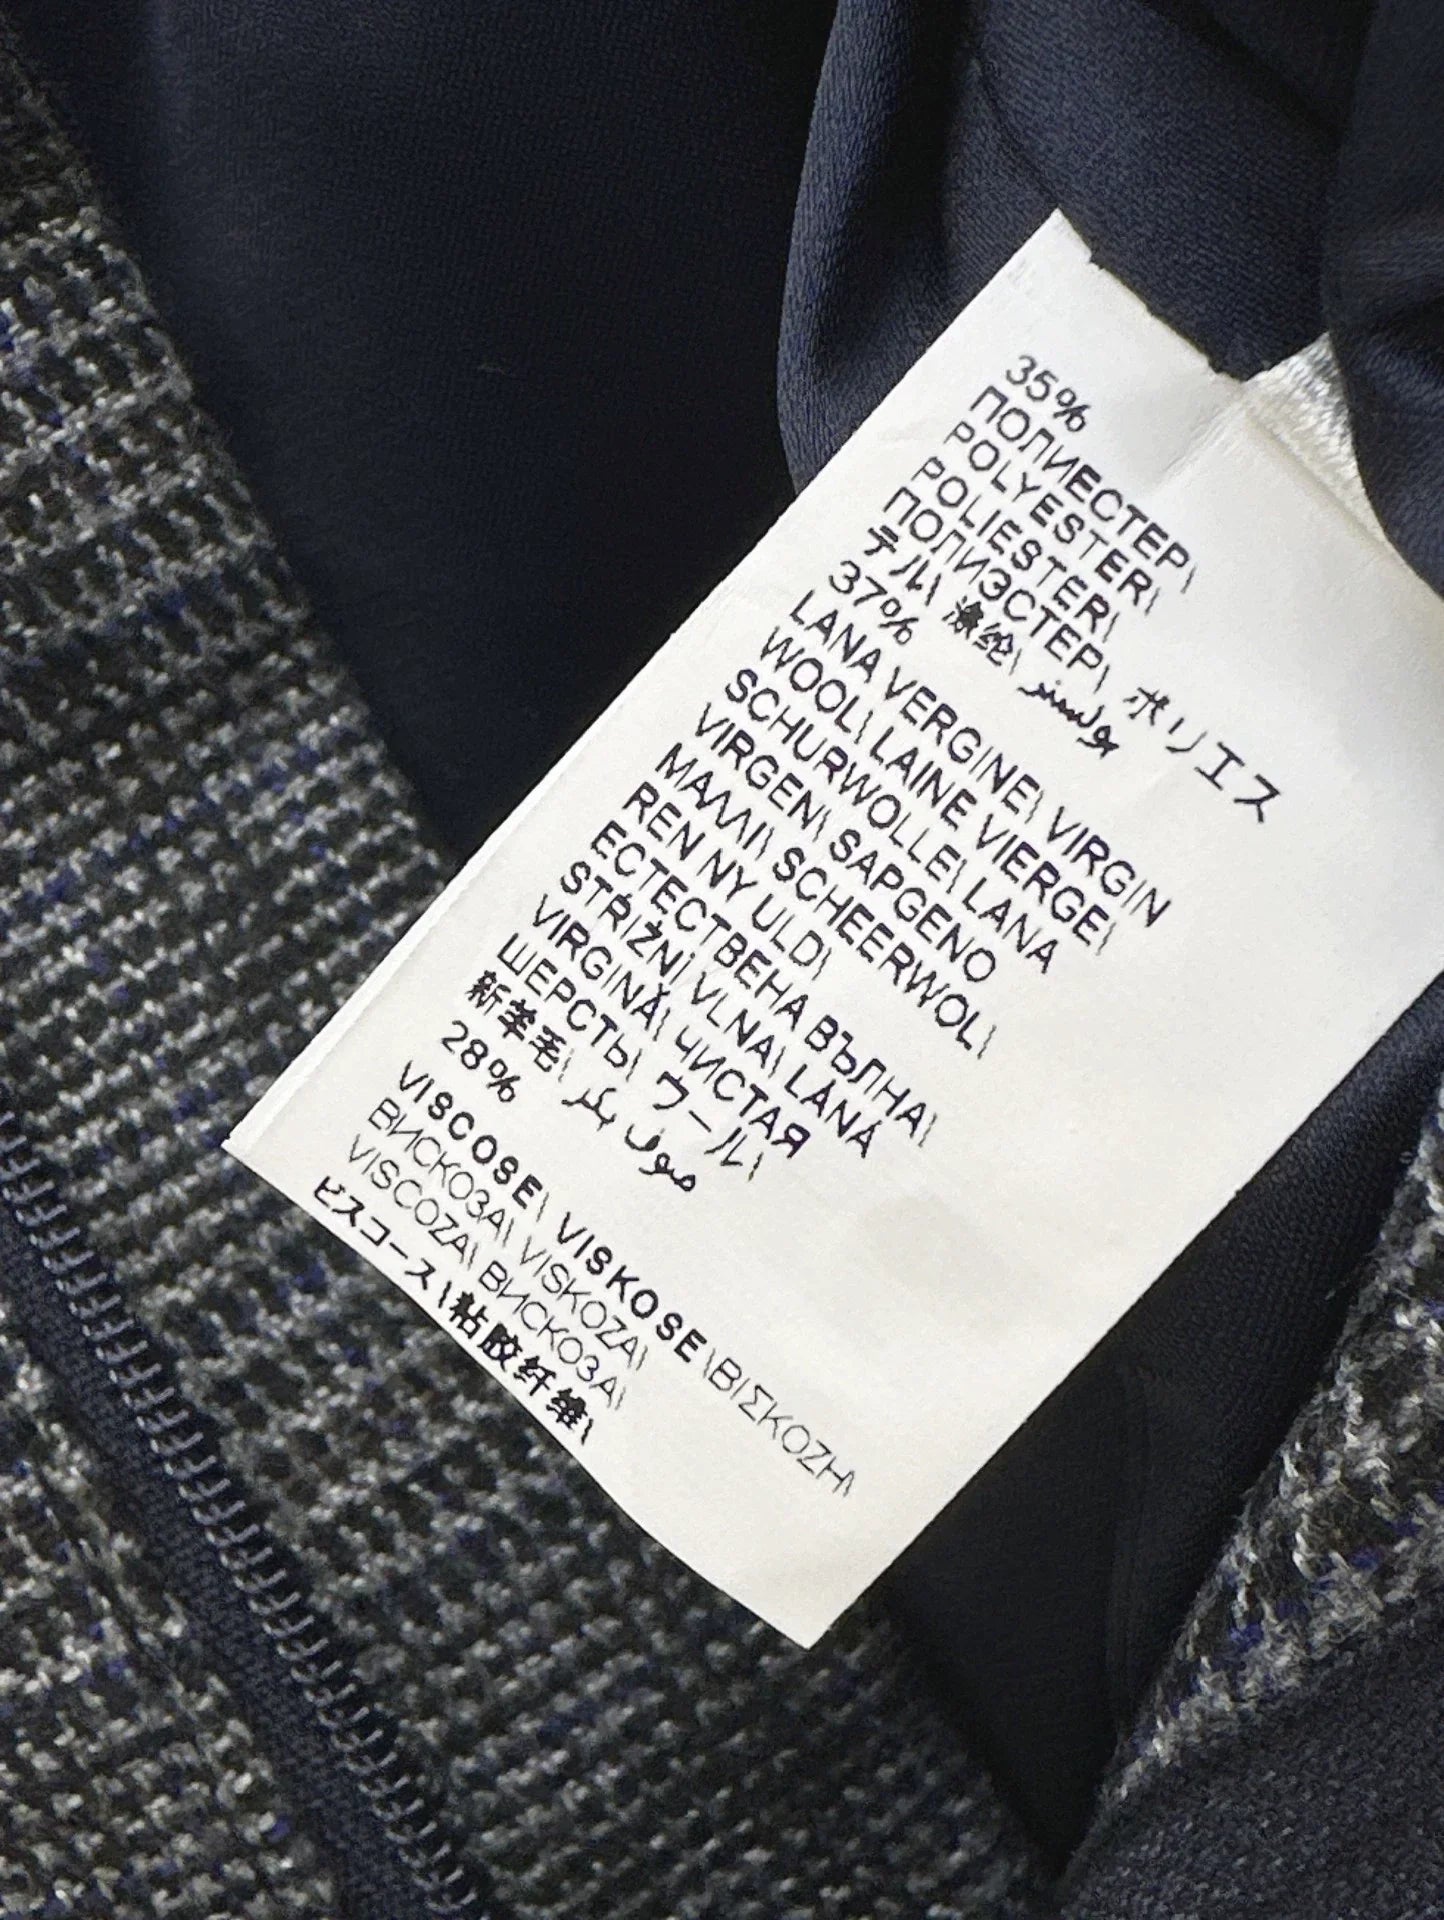 35%
ПОЛИЕСТЕР\
POLYESTER\
POLIESTER\
ПОЛИЭСТЕР\ ポリエス
テル\ 涤纶\ بولستر
37%
LANA VERGINE\ VIRGIN
WOOL\ LAINE VIERGE\
SCHURWOLLE\ LANA
VIRGEN\ ЅАРGENO
ΜΑΛΛΙ\ SCHEERWOL\
REN NY ULD\
ЕСТЕСТВЕНА ВЪЛНА\
STŘIŽNÍ VLNA\ LÂNÁ
VIRGINĂ\ ЧИСТАЯ
ШЕРСТЬ\ ウール\
新羊毛\ صوف بكر
28%
VISCOSE\ VISKOSE\ΒΙΣΚΟΖΗ\
ВИСКОЗА\ VISKOZA\
VISCOZA\ ВИСКОЗА\
ビスコース\粘胶纤维\